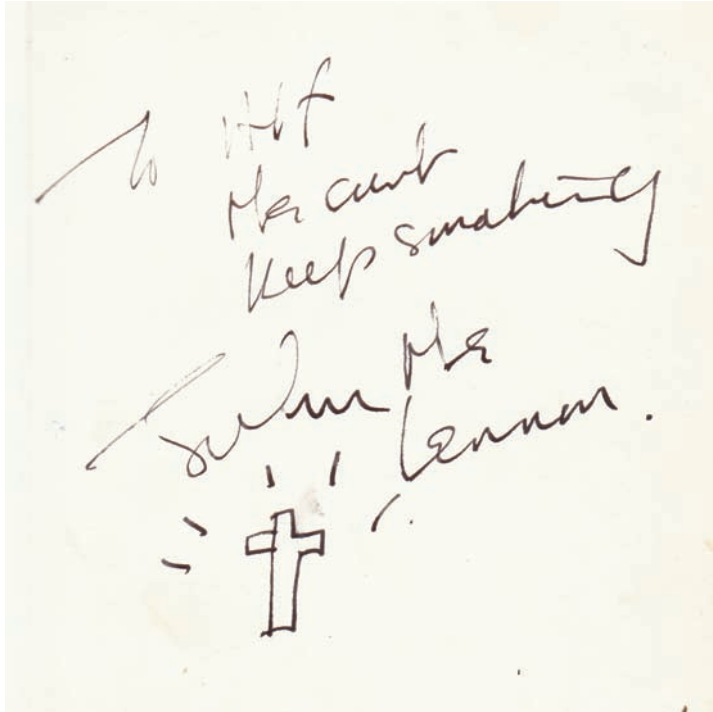 To Alf
the cunt
Keep smoking
John the
Lennon.